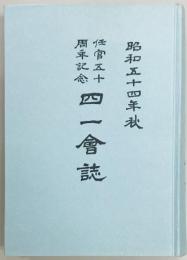 昭和五十四年秋
任官五十
周年記念
四一會誌